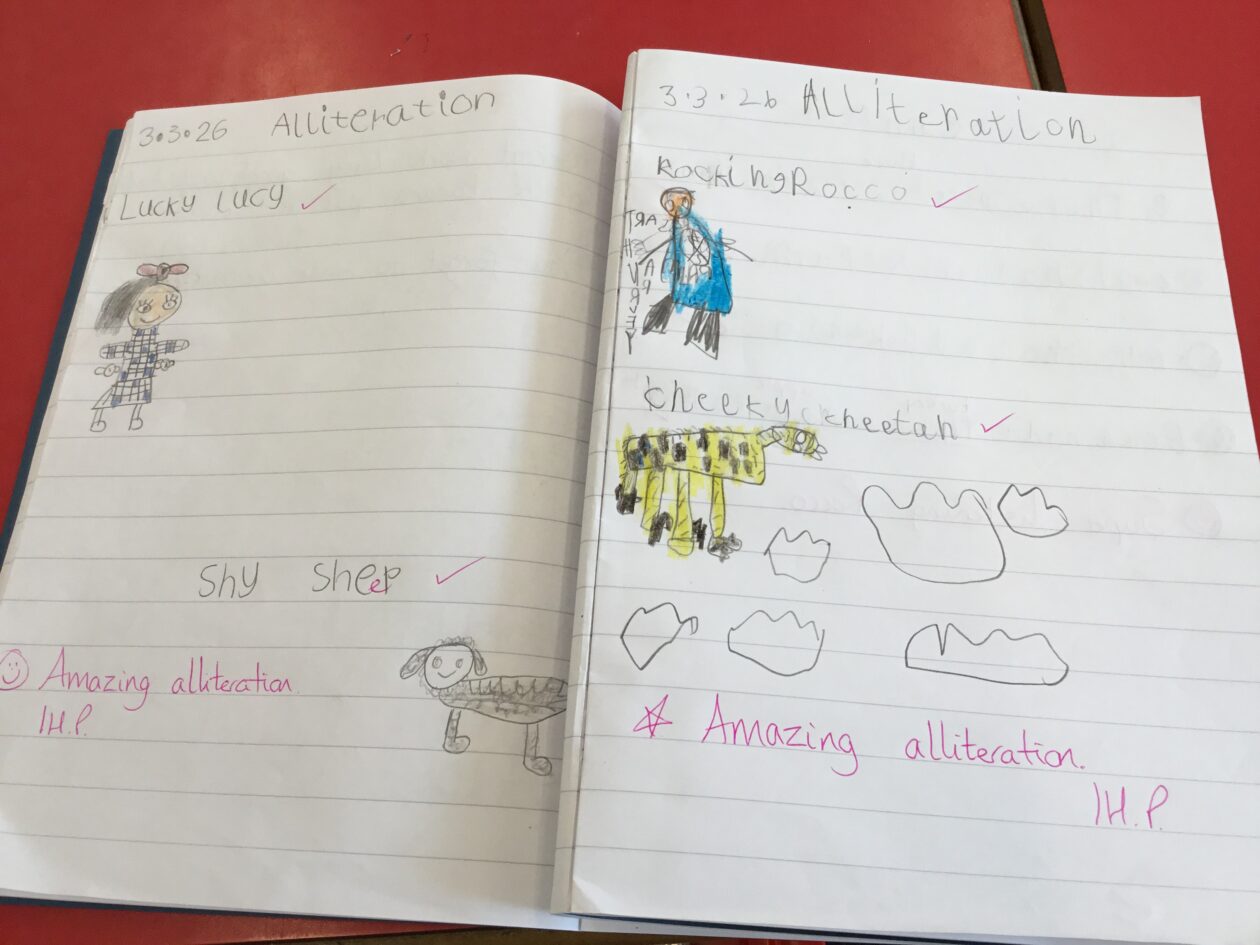 3.3.26 Alliteration
Lucky Lucy
Shy Sheep
Amazing alliteration.
1H.P.
3.3.26 Alliteration
Rocking Rocco
cheeky cheetah
Amazing alliteration.
1H.P.